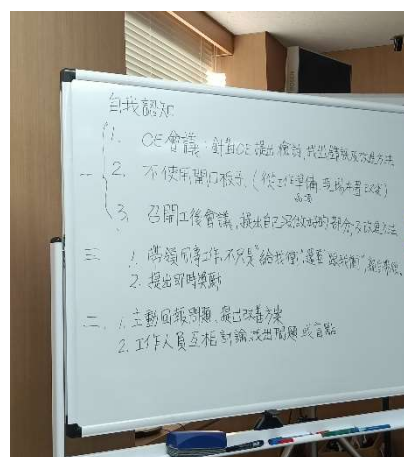 自我認知
一 1. OE會議:針對OE提出檢討,找出錯誤及改進方法
2. 不使用開口板手.(從工作準備
3. 召開工後會議,提出自己沒做好的部分及改進方法
三 1. 帶領同事工作,不只是"給我作",還要"跟我作"
2. 提出即時獎勵
二、1. 主動回報問題、提出改善方案
2. 工作人員互相討論找出問題或盲點